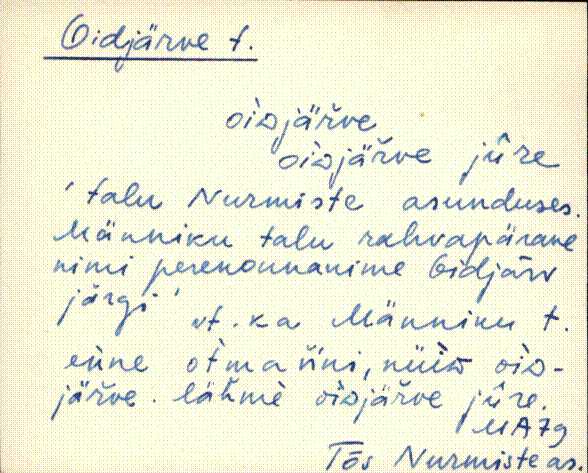 Oidjärve t.
oiᴅjäřve
oiᴅjäřve jûre
'talu Nurmiste asunduses.
Männiku talu rahvapärane
nimi perekonnanime Oidjärv
järgi'
vt. ka Männiku t.
enne
, nüìᴅ oiᴅ-
järve. lähme oiᴅjäřve jûre.
MA79
Tõs Nurmiste as.